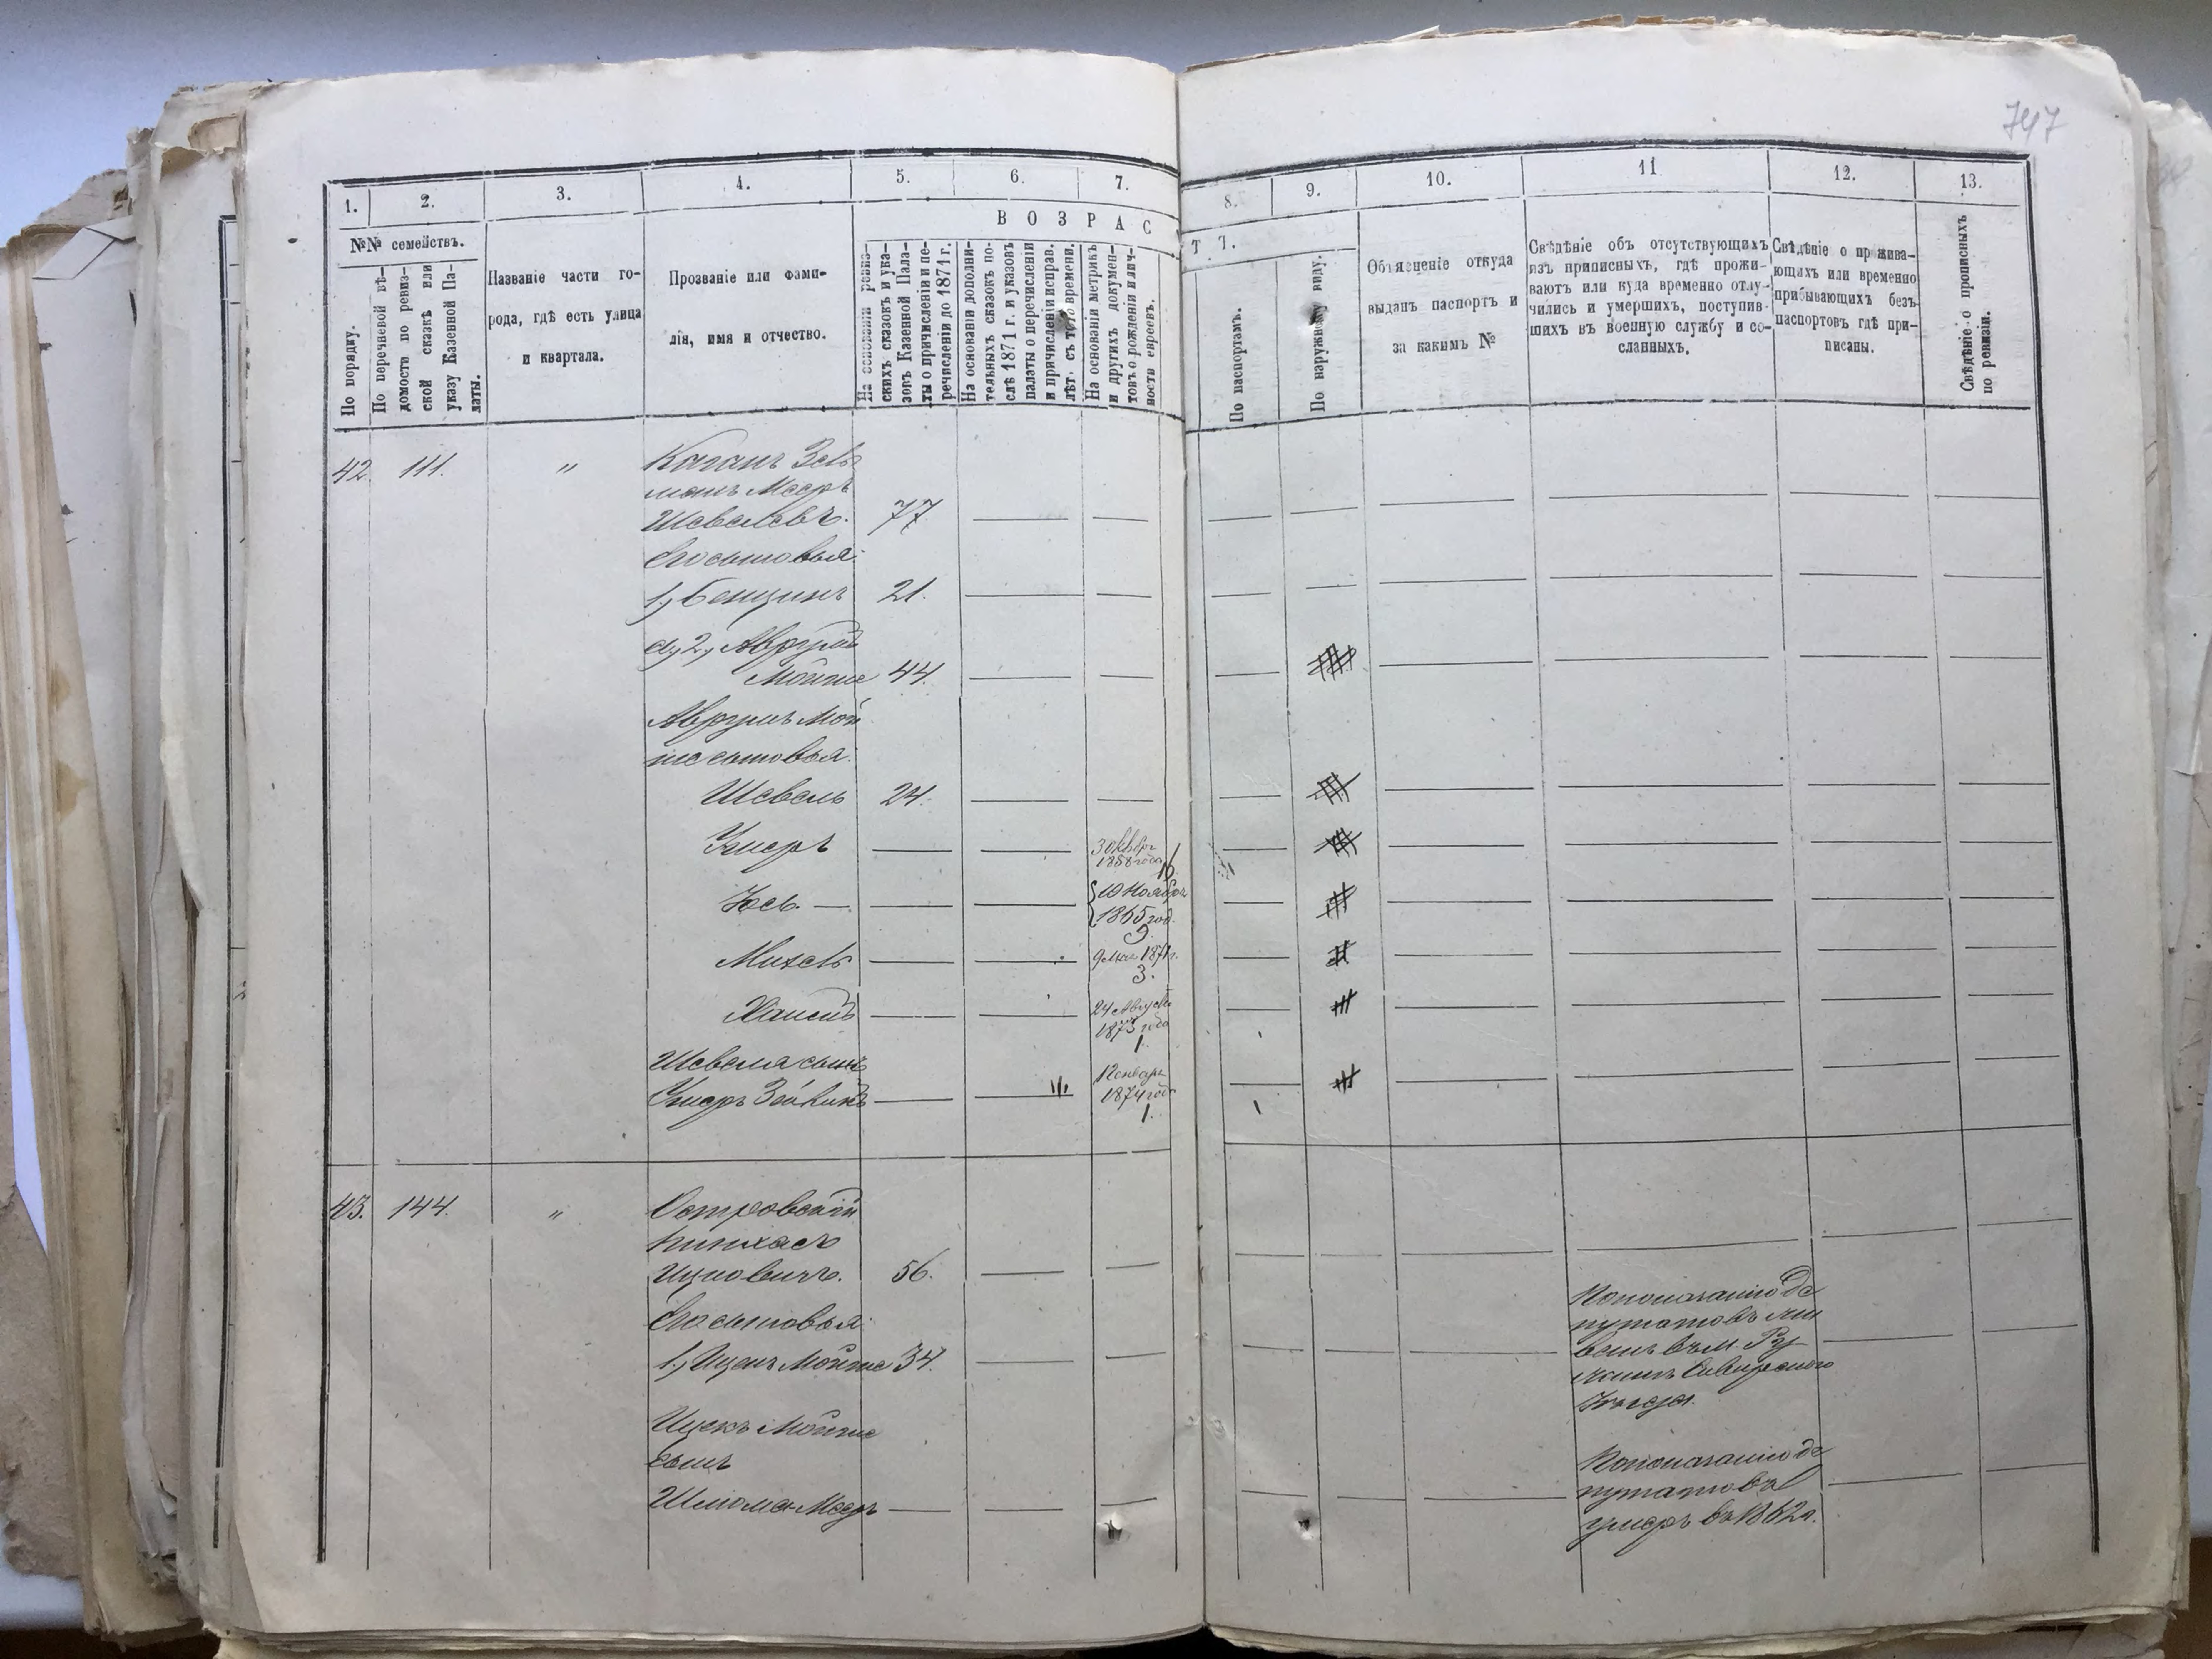 747
1.
2.
3.
4.
5.
6.
7.
8.
9.
10.
11
12.
13.
В О З Р А С
Т Ъ.
№№ семействъ.
По порядку.
По перечневой вѣ-
домости по ревиз-
ской сказкѣ или
указу Казенной Па-
латы.
Названіе части го-
рода, гдѣ есть улица
и квартала.
Прозваніе или фами-
лія, имя и отчество.
На основаніи ревиз-
скихъ сказокъ и ука-
зовъ Казенной Пала-
ты о причисленіи и пе-
речисленіи до 1871 г.
На основаніи дополни-
тельныхъ сказокъ по-
слѣ 1871 г. и указовъ
палаты о перечисленіи
и причисленіи исправ.
лѣт. съ того времени.
На основаніи метрикъ
и другихъ докумен-
товъ о рожденіи и лич-
ности евреевъ.
По паспортамъ.
По наружному виду.
Объясненіе откуда
выданъ паспортъ и
за какимъ №
Свѣдѣніе объ отсутствующихъ
изъ приписныхъ, гдѣ прожи-
ваютъ или куда временно отлу-
чились и умершихъ, поступив-
шихъ въ военную службу и со-
сланныхъ.
Свѣдѣніе о прожива-
ющихъ или временно
прибывающихъ безъ
паспортовъ гдѣ при-
писаны.
Свѣдѣніе о прописныхъ
по ревизіи.
42. 111. " Каганъ Зель
манъ Мееръ
Шевелевъ. 77
Его сыновья:
1, Бенціинъ 21.
2, Аврумъ
Мойше 44.
Аврумъ Мой
ше сыновья:
Шевель 24.
Умеръ
1858 года
16
Іось. — 10 Ноября
1865 год.
9
Михель 9 Мая 1871 г.
3.
Хаимъ 24 Августа
1873 года
1.
Шевеля сынъ
Умеръ 1 Генваря
1874 года
1.
43. 144. " Островскій
Пинхасъ
Ицковичъ. 56.
Его сыновья:
1, Ицекъ Мойше 34.
По показанію де
путатовъ жи
ветъ въ м. Ру
жинъ Сквирскаго
Уѣзда.
Ицекъ Мойше
сынъ
Шлиома Мееръ
По показанію де
путатовъ
умеръ въ 1862 г.